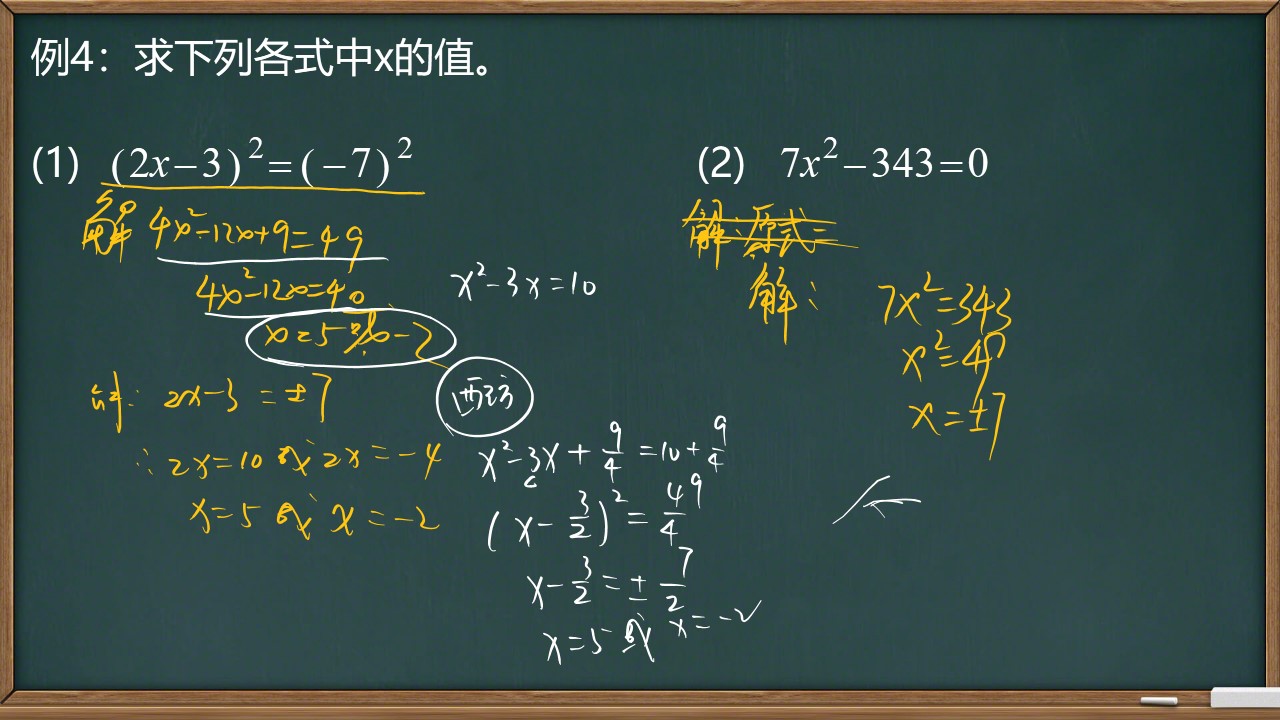 例4：求下列各式中x的值。
(1) (2x-3)²=(-7)²
解 4x²-12x+9=49
4x²-12x=40
x=5或-2
解: 2x-3=±7
∴2x=10或2x=-4
x=5或x=-2
x²-3x=10
配方
x²-3x+9/4=10+9/4
(x-3/2)²=49/4
x-3/2=±7/2
x=5或x=-2
(2) 7x²-343=0
解:原式=
解: 7x²=343
x²=49
x=±7